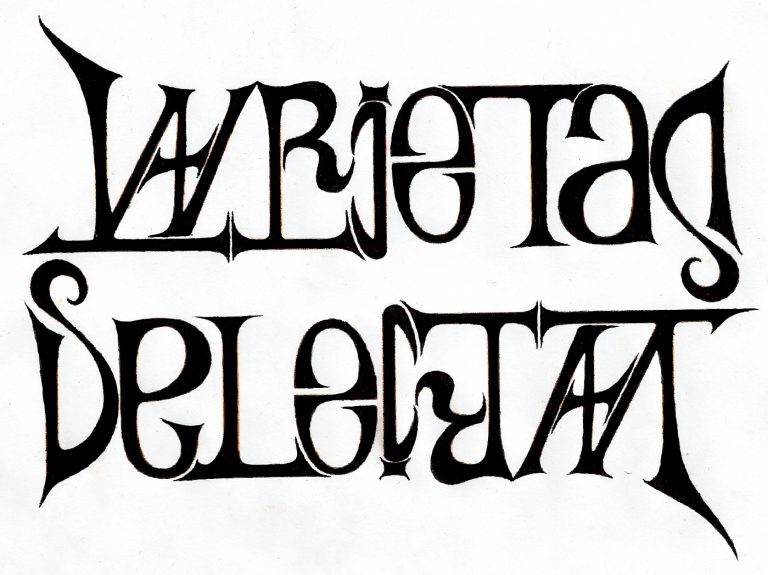 VARIETAS
DELECTAT